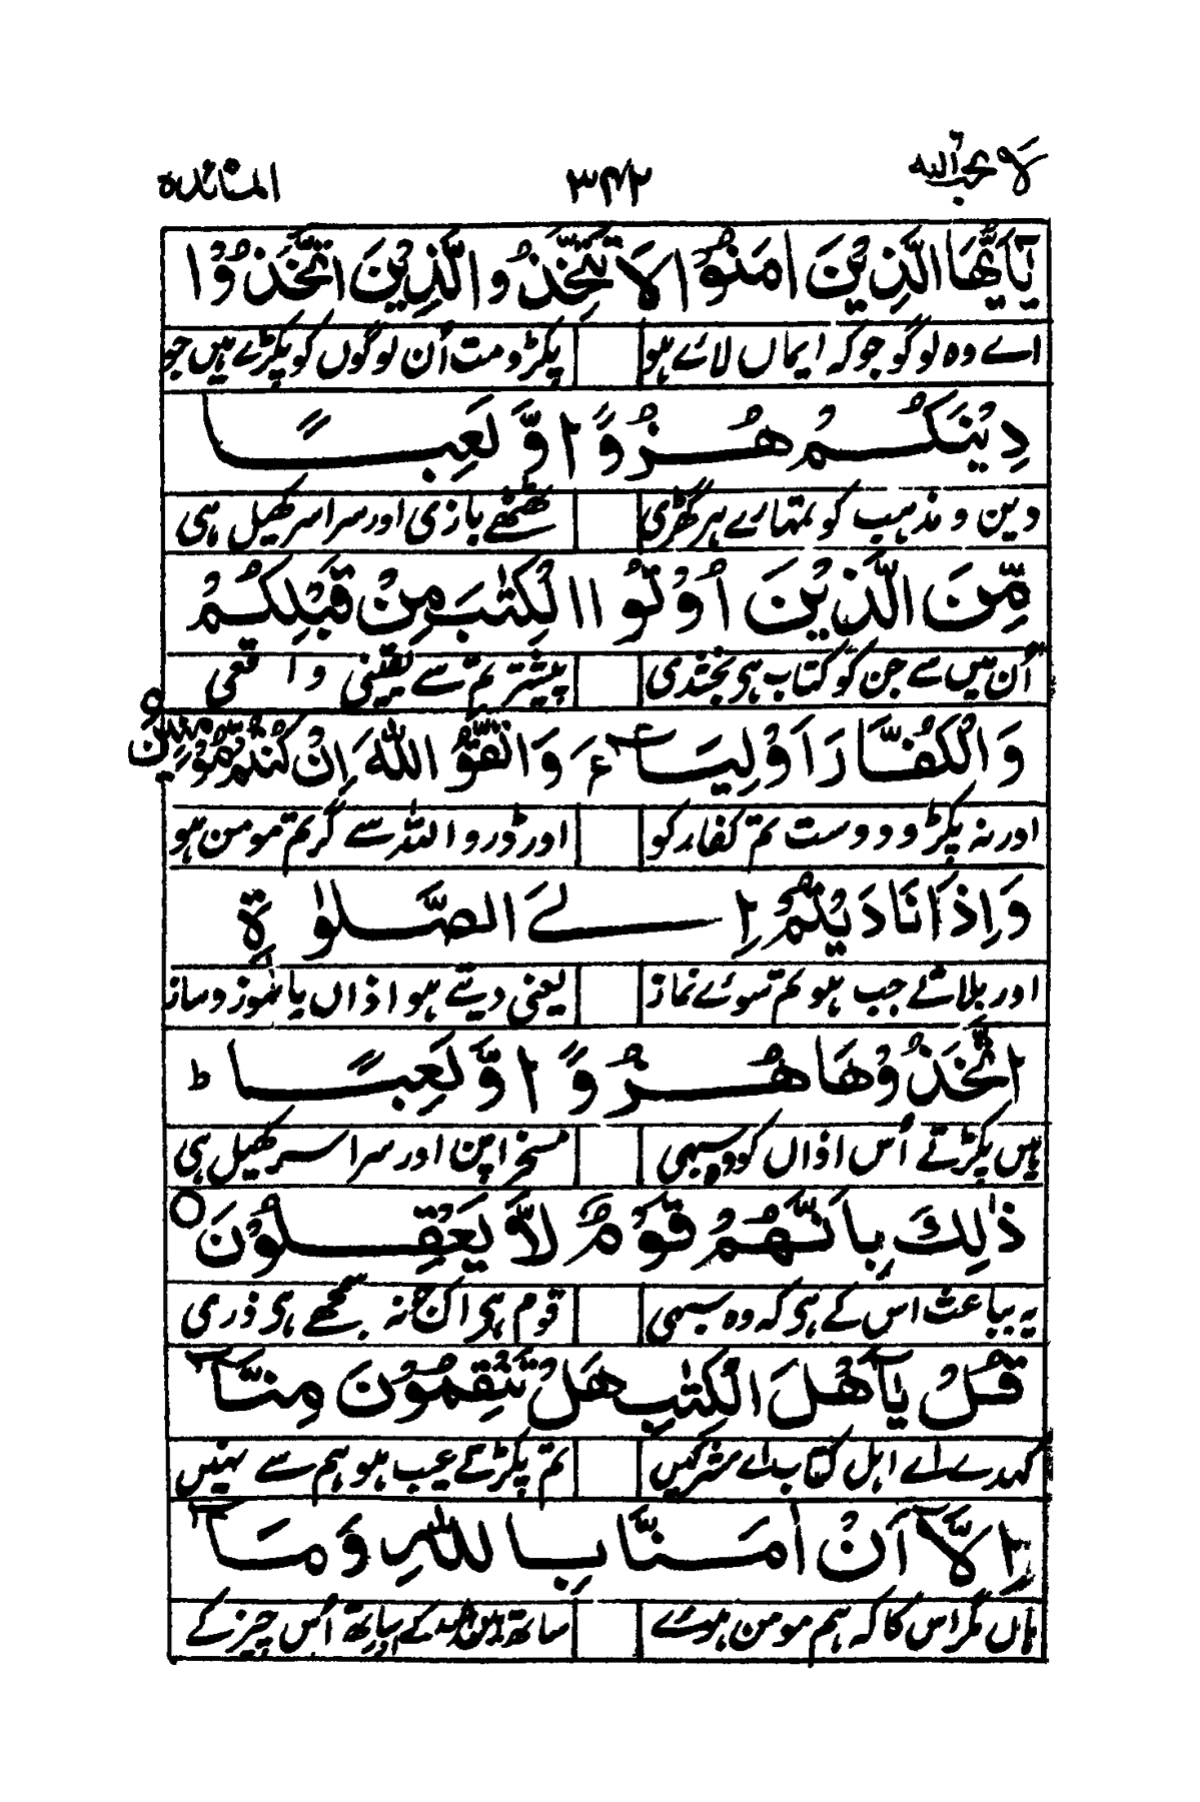 لا یحب اللہ ۳۴۲ المائدہ
يٰٓاَيُّهَا الَّذِيْنَ اٰمَنُوْا لَا تَتَّخِذُوا الَّذِيْنَ اتَّخَذُوْا
اے وہ لوگو جو کہ ایماں لائے ہو پکڑو مت اُن لوگوں کو پکڑے ہیں جو
دِيْنَكُمْ هُزُوًا وَّ لَعِبًا
دین و مذہب کو تمہارے ہر گھڑی ٹھٹھے بازی اور سراسر کھیل ہی
مِّنَ الَّذِيْنَ اُوْتُوا الْكِتٰبَ مِنْ قَبْلِكُمْ
اُن میں سے جن کو کتاب ہی بخشدی پیشتر تم سے یقینی واقعی
وَالْكُفَّارَ اَوْلِيَآءَ ۚ وَاتَّقُوا اللّٰهَ اِنْ كُنْتُمْ مُّؤْمِنِيْنَ ○
اور نہ پکڑو دوست تم کفار کو اور ڈرو اللہ سے گر تم مومن ہو
وَاِذَا نَادَيْتُمْ اِلَى الصَّلٰوةِ
اور بلاتے جب ہو تم سوئے نماز یعنی دیتے ہو اذاں با سوز و ساز
اتَّخَذُوْهَا هُزُوًا وَّ لَعِبًا ط
ہیں پکڑتے اُس اذاں کو وہ سبھی مسخرا پن اور سراسر کھیل ہی
ذٰلِكَ بِاَنَّهُمْ قَوْمٌ لَّا يَعْقِلُوْنَ ○
یہ بباعث اس کے ہی کہ وہ سبھی قوم ہی اک نہ سمجھے ہی ذری
قُلْ يٰٓاَهْلَ الْكِتٰبِ هَلْ تَنْقِمُوْنَ مِنَّآ
کہدے اے اہل کتاب اے مشرکیں تم پکڑتے عیب ہو ہم سے نہیں
اِلَّآ اَنْ اٰمَنَّا بِاللّٰهِ وَمَآ
ہاں مگر اس کا کہ ہم مومن ہوئے ساتھ کے اور ساتھ اُس چیز کے